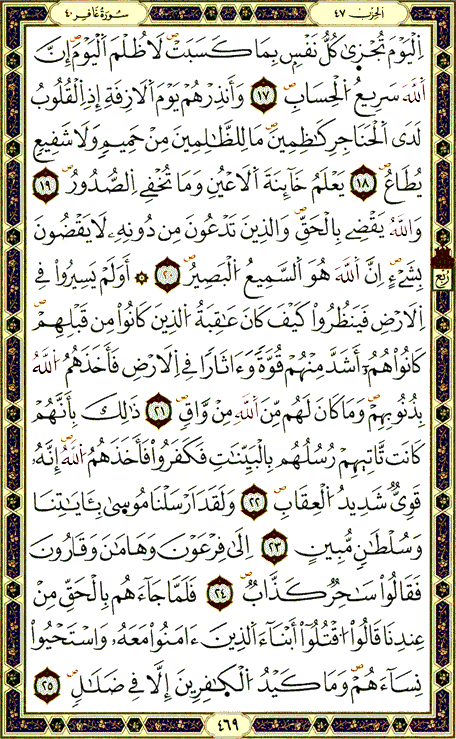 الحِزْب ٤٧
سُورَةُ غَافِر ٤٠
اِ۬لْيَوْمَ تُجْز۪ىٰ كُلُّ نَفْسِۢ بِمَا كَسَبَتْۖ لَا ظُلْمَ اَ۬لْيَوْمَۖ إِنَّ
اَ۬للَّهَ سَرِيعُ اُ۬لْحِسَابِۖ ١٧ وَأَنذِرْهُمْ يَوْمَ اَ۬لَازِفَةِ إِذِ اِ۬لْقُلُوبُ
لَدَى اَ۬لْحَنَاجِرِ كَٰظِمِينَۖ مَا لِلظَّٰلِمِينَ مِنْ حَمِيمٖ وَلَا شَفِيعٖ
يُطَاعُۖ ١٨ يَعْلَمُ خَآئِنَةَ اَ۬لَاعْيُنِ وَمَا تُخْفِے اِ۬لصُّدُورُۖ ١٩
وَاللَّهُ يَقْضِے بِالْحَقِّۖ وَالذِينَ تَدْعُونَ مِن دُونِهِۦ لَا يَقْضُونَ
بِشَےْءٍۖ اِنَّ اَ۬للَّهَ هُوَ اَ۬لسَّمِيعُ اُ۬لْبَصِيرُۖ ٢٠ ۞ أَوَلَمْ يَسِيرُواْ فِے
اِ۬لَارْضِ فَيَنظُرُواْ كَيْفَ كَانَ عَٰقِبَةُ اُ۬لذِينَ كَانُواْ مِن قَبْلِهِمْۖ
كَانُواْ هُمُۥٓ أَشَدَّ مِنْهُمْ قُوَّةٗ وَءَاثَارٗا فِے اِ۬لَارْضِ فَأَخَذَهُمُ اُ۬للَّهُ
بِذُنُوبِهِمْۖ وَمَا كَانَ لَهُم مِّنَ اَ۬للَّهِ مِنْ وَّاقٖۖ ٢١ ذَٰلِكَ بِأَنَّهُمْ
كَانَت تَّاتِيهِمْ رُسُلُهُم بِالْبَيِّنَٰتِ فَكَفَرُواْ فَأَخَذَهُمُ اُ۬للَّهُۖ إِنَّهُۥ
قَوِيّٞ شَدِيدُ اُ۬لْعِقَابِۖ ٢٢ وَلَقَدَ اَرْسَلْنَا مُوس۪ىٰ بِـَٔايَٰتِنَا
وَسُلْطَٰنٖ مُّبِينٍ ٢٣ اِلَىٰ فِرْعَوْنَ وَهَٰمَٰنَ وَقَٰرُونَ
فَقَالُواْ سَٰحِرٞ كَذَّابٞۖ ٢٤ فَلَمَّا جَآءَهُم بِالْحَقِّ مِنْ
عِندِنَا قَالُواْ اُ۟قْتُلُوٓاْ أَبْنَآءَ اَ۬لذِينَ ءَامَنُواْ مَعَهُۥ وَاسْتَحْيُواْ
نِسَآءَهُمْۖ وَمَا كَيْدُ اُ۬لْكٰ۪فِرِينَ إِلَّا فِے ضَلَٰلٖۖ ٢٥
رُبُع
٤٦٩